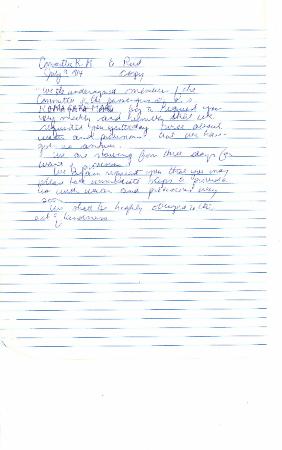 Committee K. M to Reid
July 9 '14 Copy
"We the undersigned members of the
Committee of the passengers of S. S
KAMAGATA MARU beg to request you
very meekly and humbly that we
requested you yesterday twice about
water and provisions but we have
got no answer.
We are starving from three days for
want of
We again request you that you may
please take immediate steps to provide
us with water and provisions very
soon
We shall be highly obliged to the
act of kindness